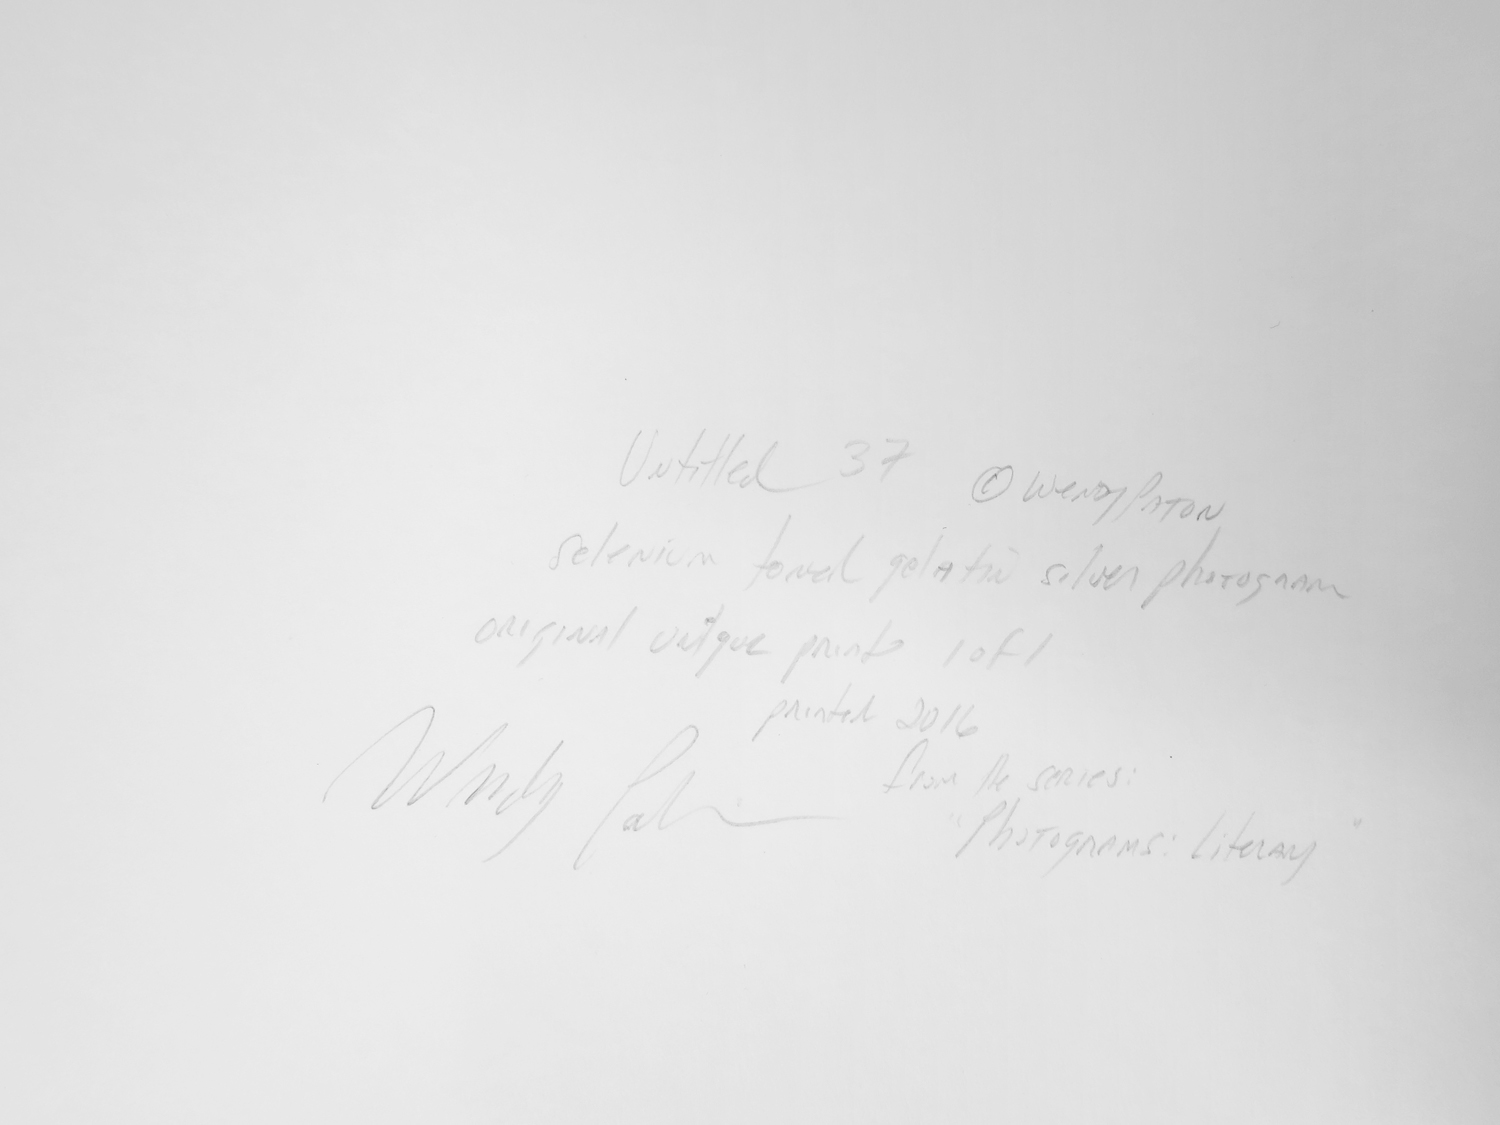 Untitled 37 © Wendy Paton
selenium toned gelatin silver photogram
original unique print 1 of 1
printed 2016
Wendy Paton
from the series:
"Photograms: Literary"